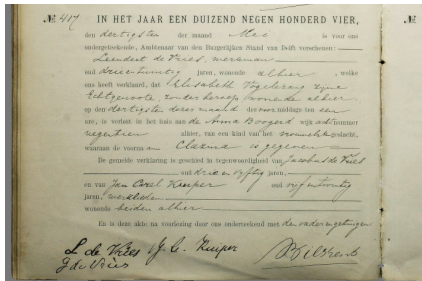 № 417 IN HET JAAR EEN DUIZEND NEGEN HONDERD VIER, №
den dertigsten der maand Mei is voor ons
ondergeteekende, Ambtenaar van den Burgerlijken Stand van Delft verschenen:
Leendert de Vries, werkman
oud drieëntwintig jaren, wonende alhier, welke
ons heeft verklaard, dat Elisabeth Vogelezang zijne
Echtgenoote, zonder beroep, wonende alhier
op den dertigsten dezer maand des voormiddags ten een
ure, is verlost in het huis aan de Anna Boogerd wijk nummer
negentien alhier, van een kind van het vrouwelijk geslacht,
waaraan de voornaam Clazina is gegeven
De gemelde verklaring is geschied in tegenwoordigheid van Jacobus de Vries
oud drie en vijftig jaren,
en van Jan Carel Kuiper oud vijfentwintig
jaren, werklieden
wonende beiden alhier
En is deze akte na voorlezing door ons onderteekend met den ondergetuigen
L de Vries J. C. Kuiper
J de Vries